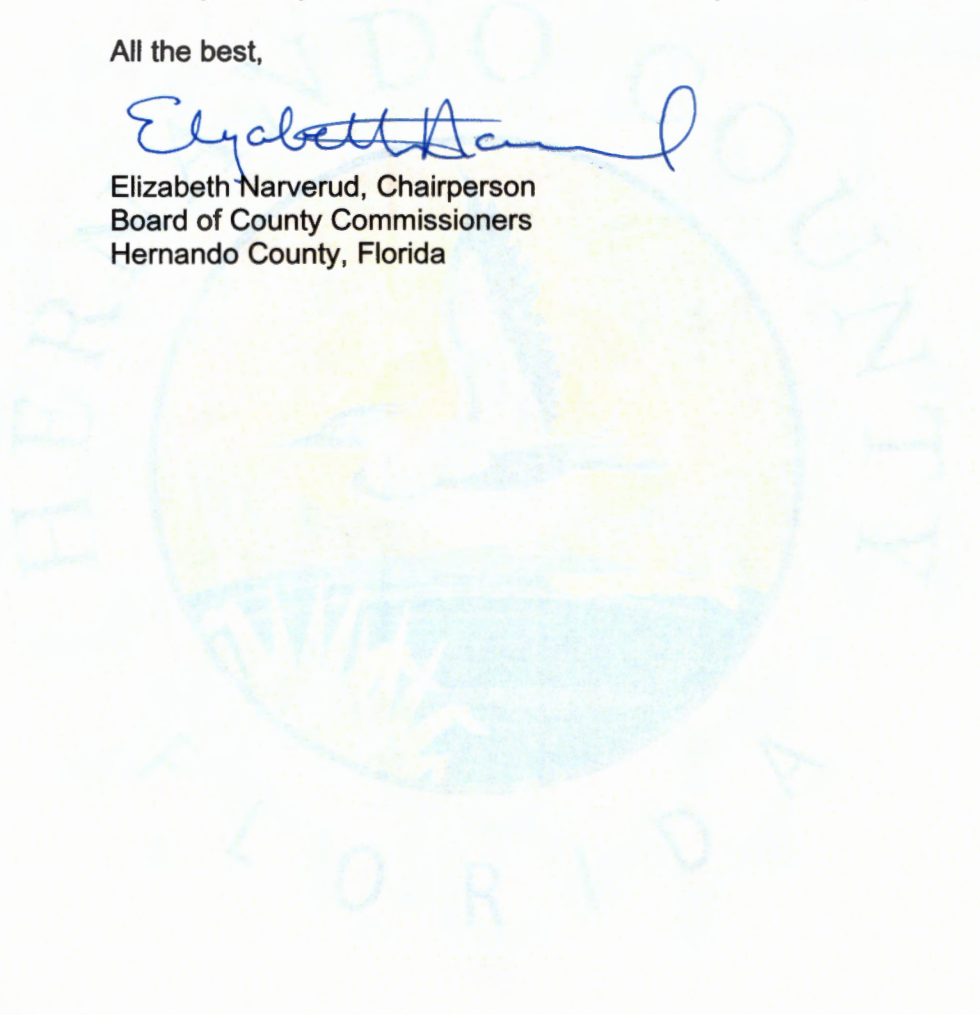 All the best,
Elizabeth Narverud, Chairperson
Board of County Commissioners
Hernando County, Florida
HERNANDO COUNTY
FLORIDA